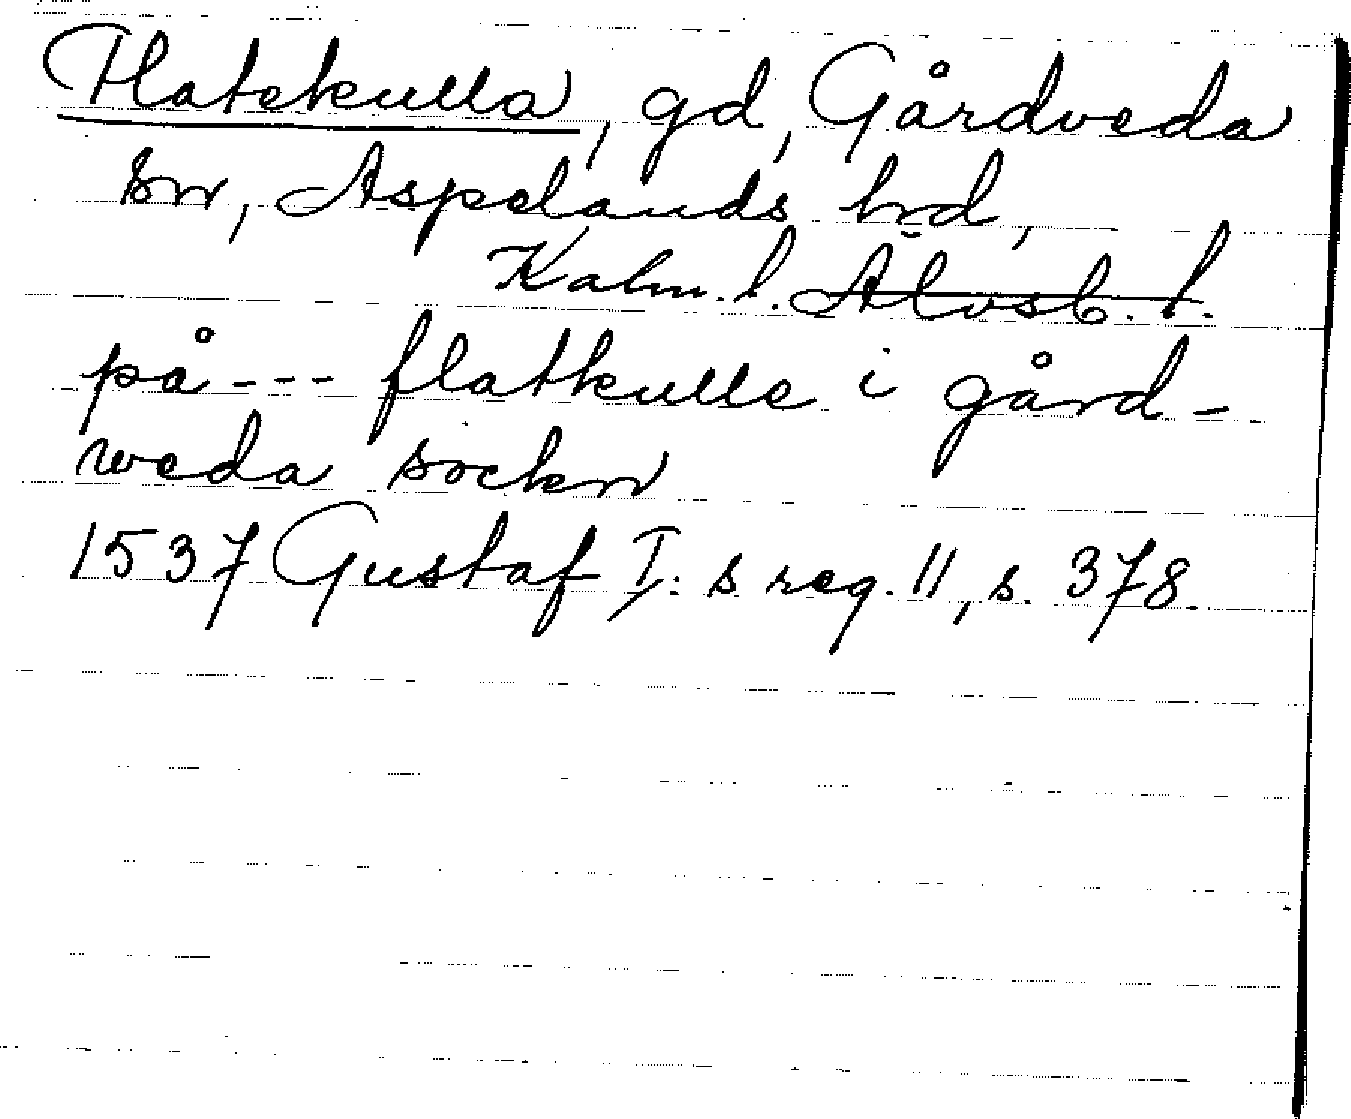 Flatekulla, gd, Gårdveda
sn, Aspelands hd,
Kalm. l. Älvsb. l.
på --- flatkulle i gård-
weda sockn
1537 Gustaf I:s reg. 11, s. 378.